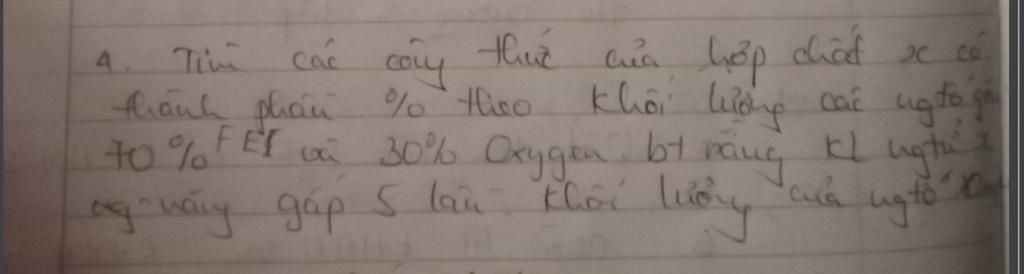 4. Tìm các công thức của hợp chất x có
thành phần % theo khối lượng các ngtố gồm
70% FE và 30% Oxygen. bt rằng KL ngtử x
nặng gấp 5 lần khối lượng của ngtố